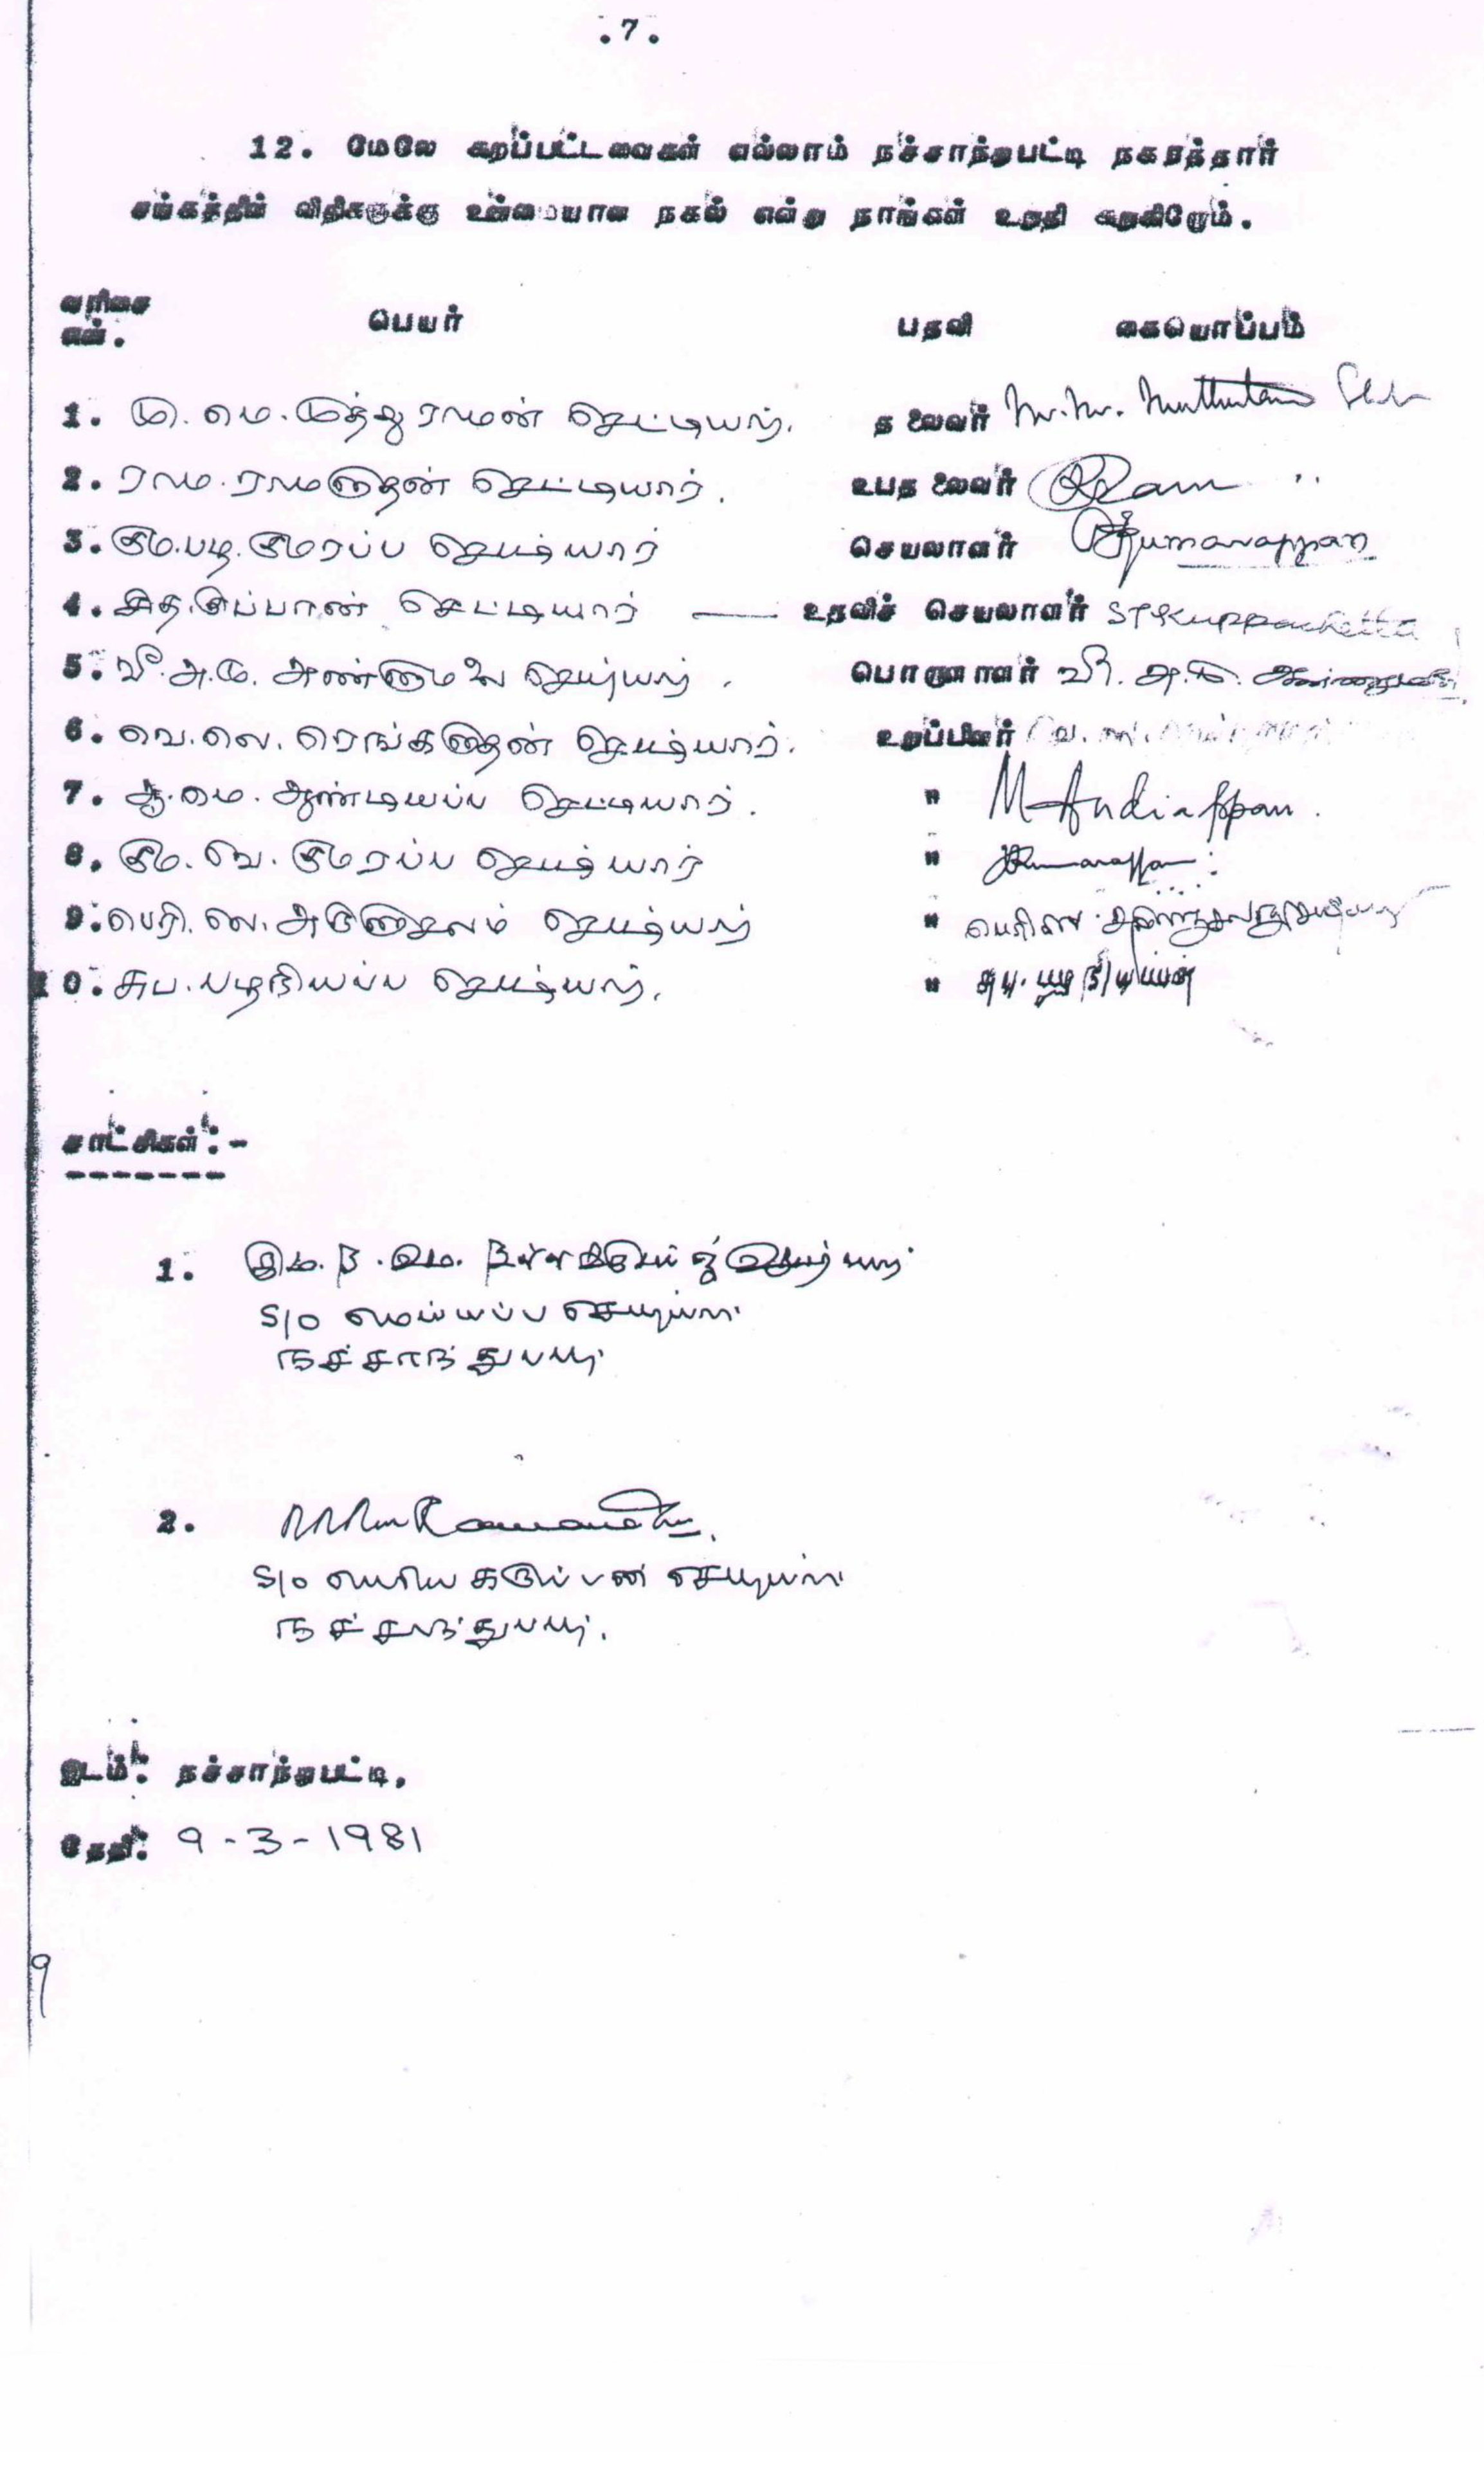 .7.
12. மேலே கூறப்பட்டவைகள் எல்லாம் நச்சாந்துபட்டி நகரத்தார்
சங்கத்தின் விதிகளுக்கு உண்மையான நகல் என்று நாங்கள் உறுதி கூறுகிறோம்.
வரிசை எண். பெயர் பதவி கையொப்பம்
1. மு. மெ. முத்துராமன் செட்டியார். தலைவர்
2. ராம. ராமநாதன் செட்டியார். உபதலைவர்
3. கும. பழ. குமரப்ப செட்டியார் செயலாளர் Kumarappan
4. சித. குப்பான் செட்டியார் — உதவிச் செயலாளர்
5. வீ. அ. மு. அண்ணாமலை செட்டியார். பொருளாளர் வீ. அ. மு.
6. வெ. லெ. ரெங்கநாதன் செட்டியார். உறுப்பினர்
7. ஆ. மெ. ஆண்டியப்ப செட்டியார். " M Andiappan.
8. கும. வெ. குமரப்ப செட்டியார் " Kumarappan
9. பெரி. லெ. அருணாசலம் செட்டியார் "
10. சுப. பழநியப்ப செட்டியார். " சுப. பழநியப்பன்
சாட்சிகள்:-
1.
S/o மெய்யப்ப செட்டியார்
நச்சாந்துபட்டி
2.
S/o பெரியகருப்பன் செட்டியார்
நச்சாந்துபட்டி.
இடம்: நச்சாந்துபட்டி.
தேதி: 9-3-1981
9